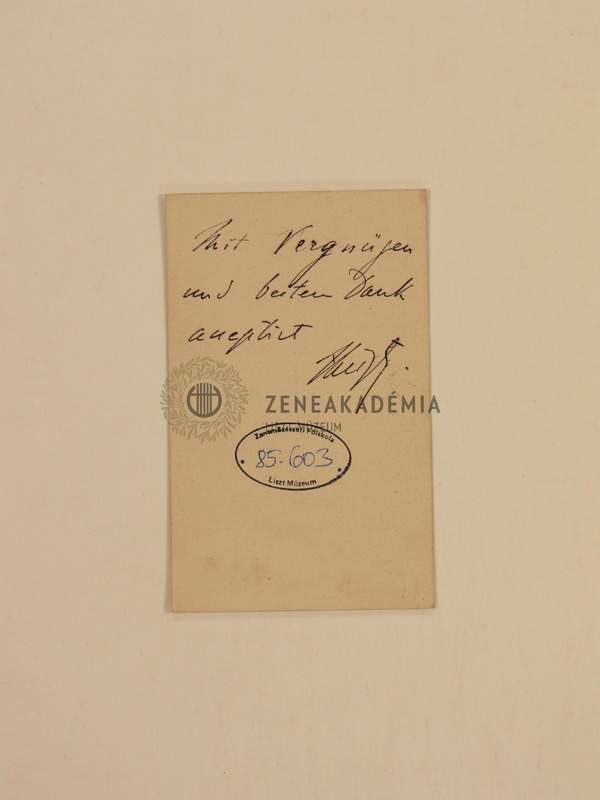 Mit Vergnügen
und besten Dank
acceptirt
ZENEAKADÉMIA
LISZT MÚZEUM
Zeneművészeti Főiskola
85-603
Liszt Múzeum